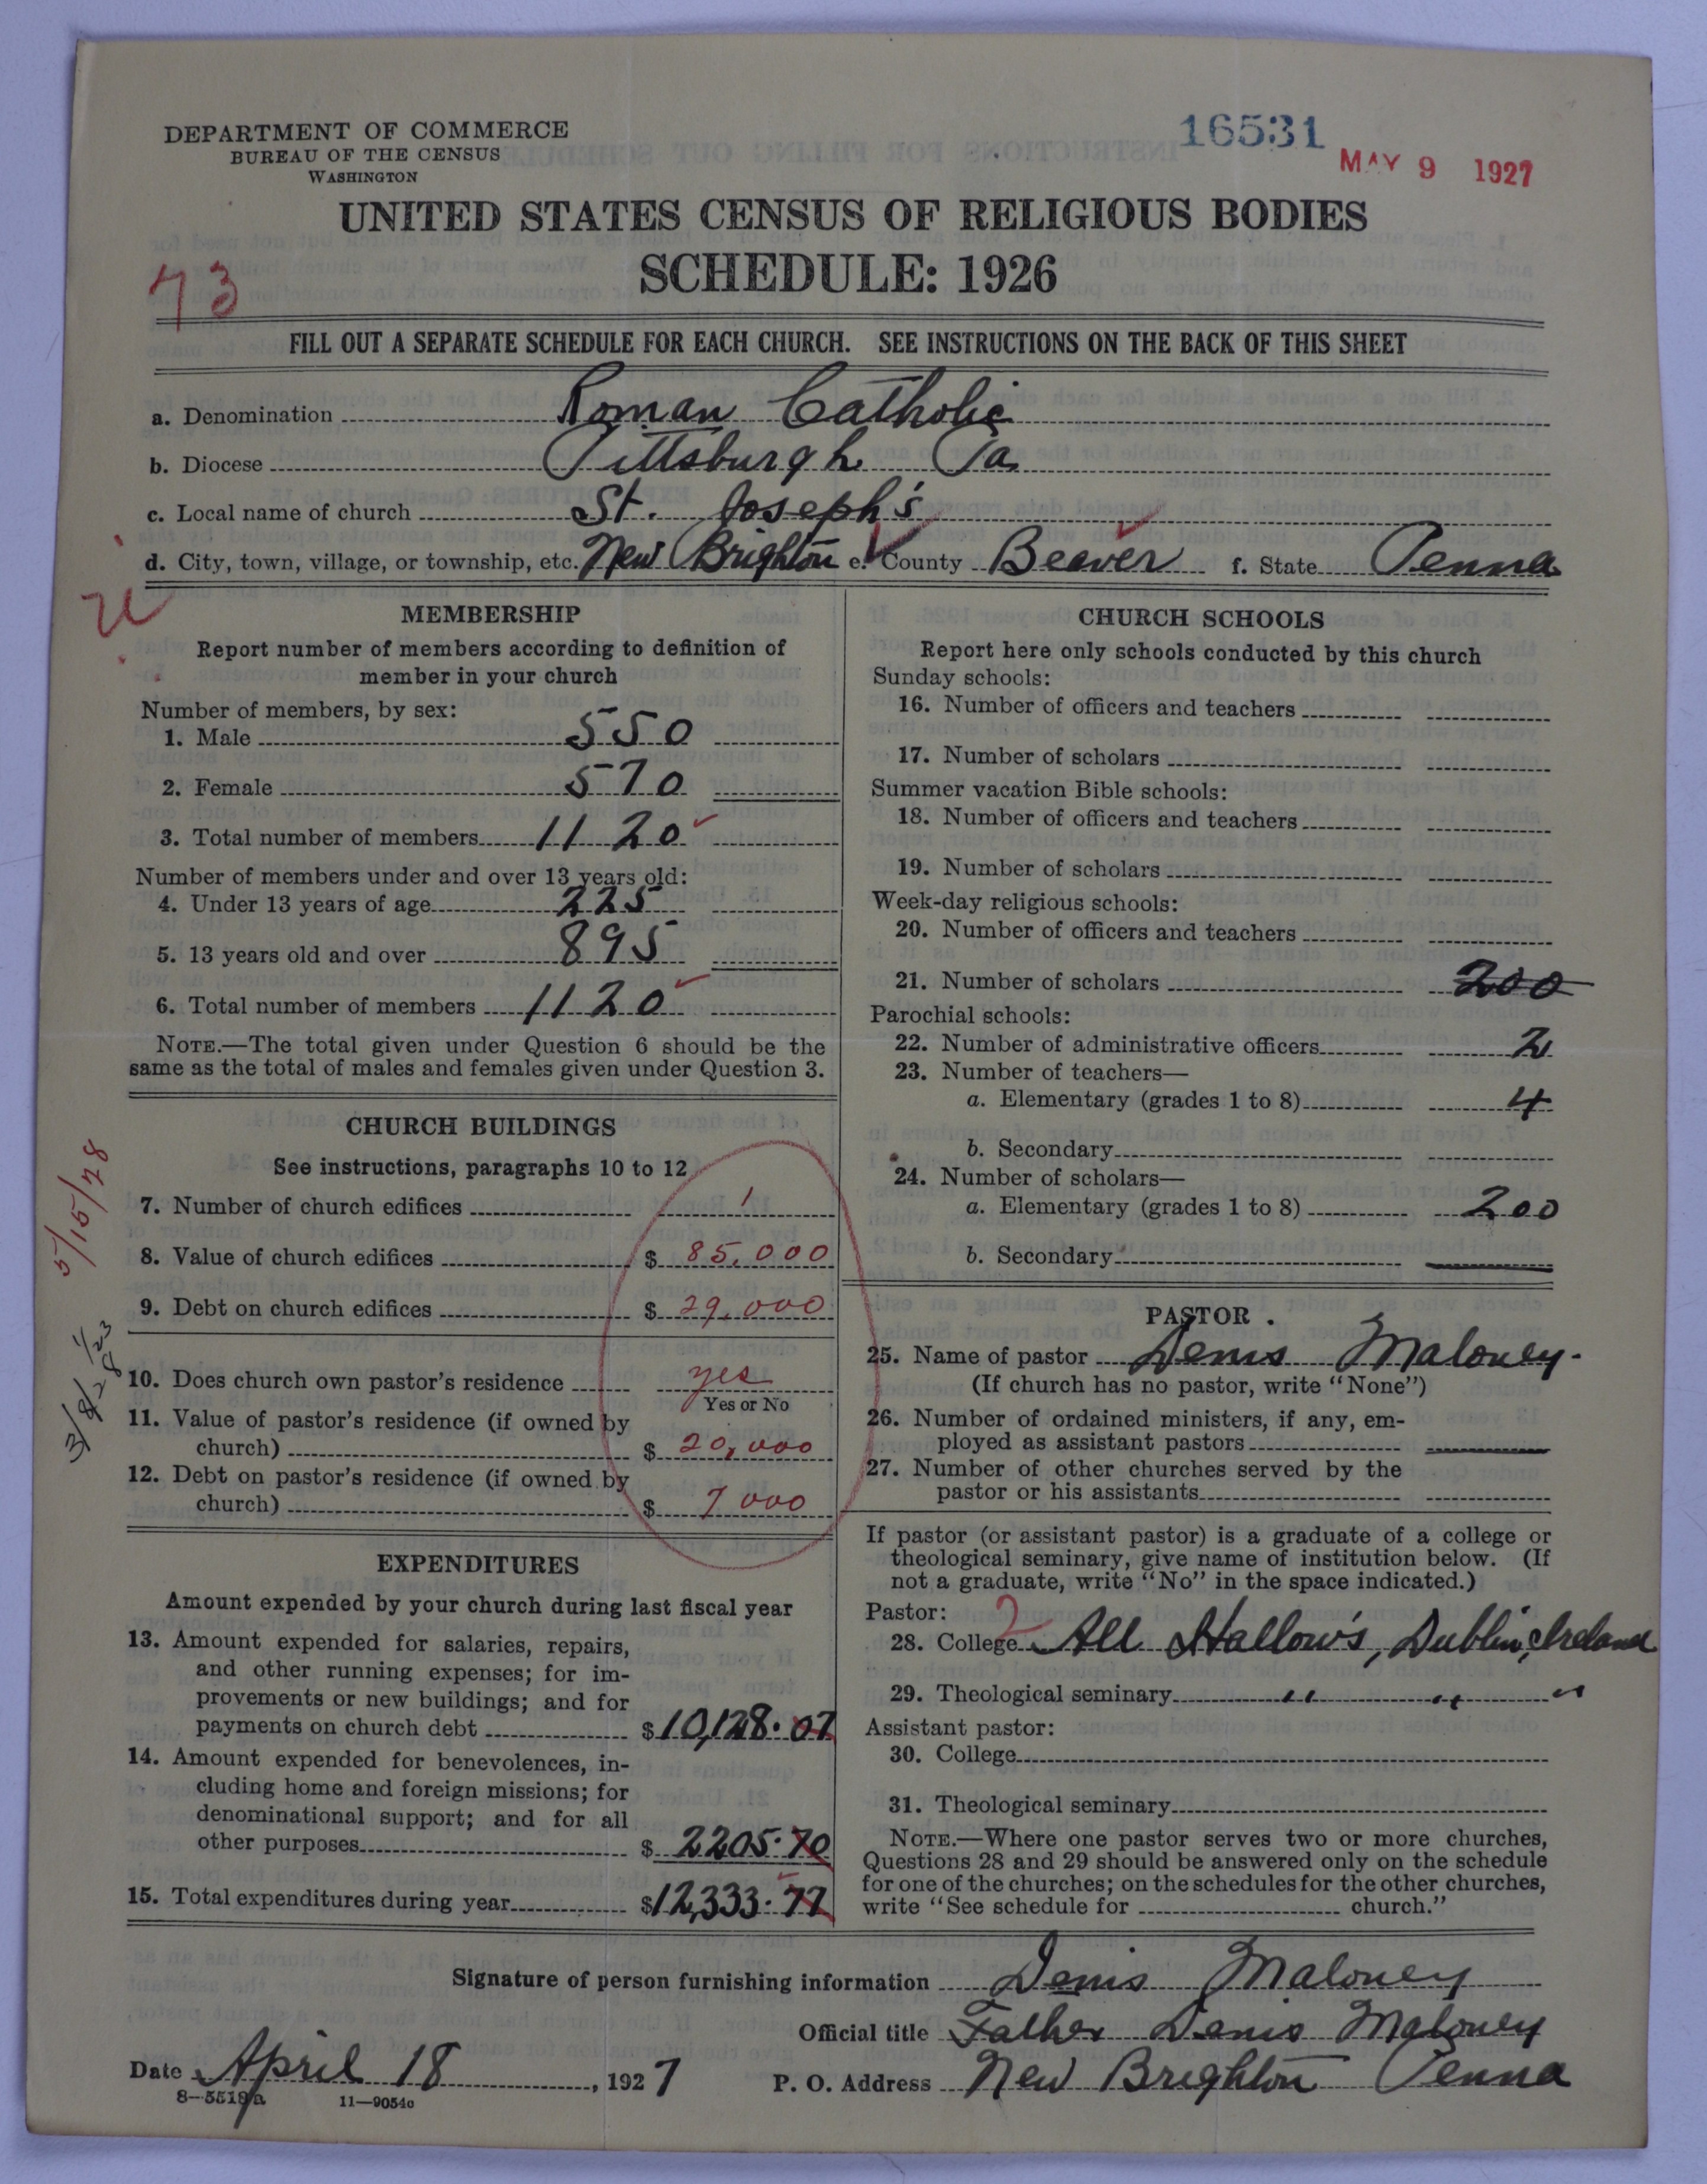 DEPARTMENT OF COMMERCE
BUREAU OF THE CENSUS
WASHINGTON
16531
MAY 9 1927
UNITED STATES CENSUS OF RELIGIOUS BODIES
SCHEDULE: 1926
73
FILL OUT A SEPARATE SCHEDULE FOR EACH CHURCH. SEE INSTRUCTIONS ON THE BACK OF THIS SHEET
a. Denomination Roman Catholic
b. Diocese Pittsburgh Pa
c. Local name of church St. Joseph's
d. City, town, village, or township, etc. New Brighton e. County Beaver f. State Penna
MEMBERSHIP
Report number of members according to definition of
member in your church
Number of members, by sex:
1. Male 550
2. Female 570
3. Total number of members 1120
Number of members under and over 13 years old:
4. Under 13 years of age 225
5. 13 years old and over 895
6. Total number of members 1120
NOTE.—The total given under Question 6 should be the
same as the total of males and females given under Question 3.
CHURCH BUILDINGS
See instructions, paragraphs 10 to 12
7. Number of church edifices 1
8. Value of church edifices $ 85,000
9. Debt on church edifices $ 29,000
10. Does church own pastor's residence yes
Yes or No
11. Value of pastor's residence (if owned by
church) $ 20,000
12. Debt on pastor's residence (if owned by
church) $ 7000
5/15/28
EXPENDITURES
Amount expended by your church during last fiscal year
13. Amount expended for salaries, repairs,
and other running expenses; for im-
provements or new buildings; and for
payments on church debt $10,128.07
14. Amount expended for benevolences, in-
cluding home and foreign missions; for
denominational support; and for all
other purposes $ 2205.70
15. Total expenditures during year $12,333.77
CHURCH SCHOOLS
Report here only schools conducted by this church
Sunday schools:
16. Number of officers and teachers
17. Number of scholars
Summer vacation Bible schools:
18. Number of officers and teachers
19. Number of scholars
Week-day religious schools:
20. Number of officers and teachers
21. Number of scholars 200
Parochial schools:
22. Number of administrative officers 2
23. Number of teachers—
a. Elementary (grades 1 to 8) 4
b. Secondary
24. Number of scholars—
a. Elementary (grades 1 to 8) 200
b. Secondary
PASTOR
25. Name of pastor Denis Maloney.
(If church has no pastor, write "None")
26. Number of ordained ministers, if any, em-
ployed as assistant pastors
27. Number of other churches served by the
pastor or his assistants
If pastor (or assistant pastor) is a graduate of a college or
theological seminary, give name of institution below. (If
not a graduate, write "No" in the space indicated.)
Pastor: 2
28. College All Hallow's, Dublin, Ireland
29. Theological seminary " " "
Assistant pastor:
30. College
31. Theological seminary
NOTE.—Where one pastor serves two or more churches,
Questions 28 and 29 should be answered only on the schedule
for one of the churches; on the schedules for the other churches,
write "See schedule for church."
Signature of person furnishing information Denis Maloney
Official title Father Denis Maloney
Date April 18, 1927 P. O. Address New Brighton Penna
8—5518a 11—9054c